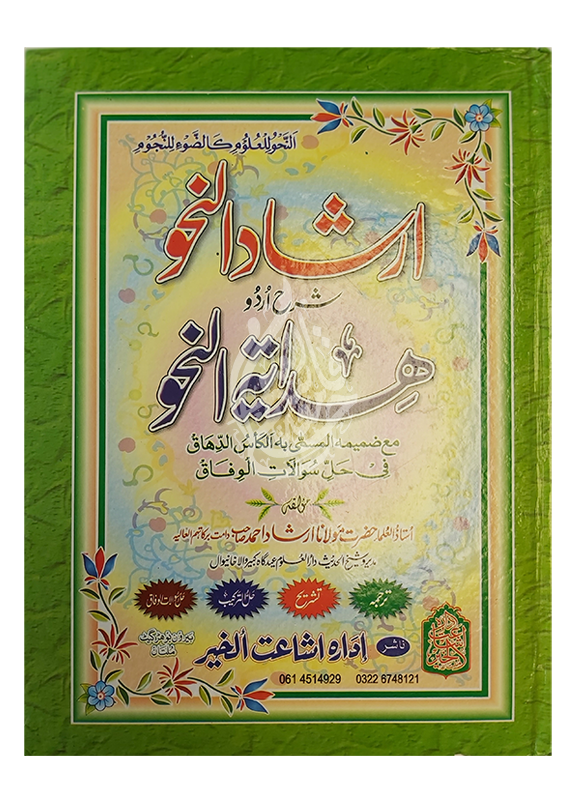 اَلنَّحْوُ لِلْعُلُوْمِ كَالضَّوْءِ لِلنُّجُوْمِ
ارشاد النحو
شرح اُردُو
ھدایۃ النحو
مع ضمیمہ المسمّٰی بہ اَلکَاْسُ الدِّھَاقُ
فِیْ حَلِّ سُوَالَاتِ الْوِفَاقْ
مؤلفہ
اُستاذ العلما حضرت مولانا ارشاد احمد صاحب دامت برکاتہم العالیہ
مدیر و شیخ الحدیث دارالعلوم عیدگاہ کبیر والا خانیوال
ترجمہ
تشریح
حل التركيب
حل سوالات وفاق
ناشر
ادارہ اشاعت الخیر
بیرون بوھڑ گیٹ
مُلتان
061 4514929 0322 6748121